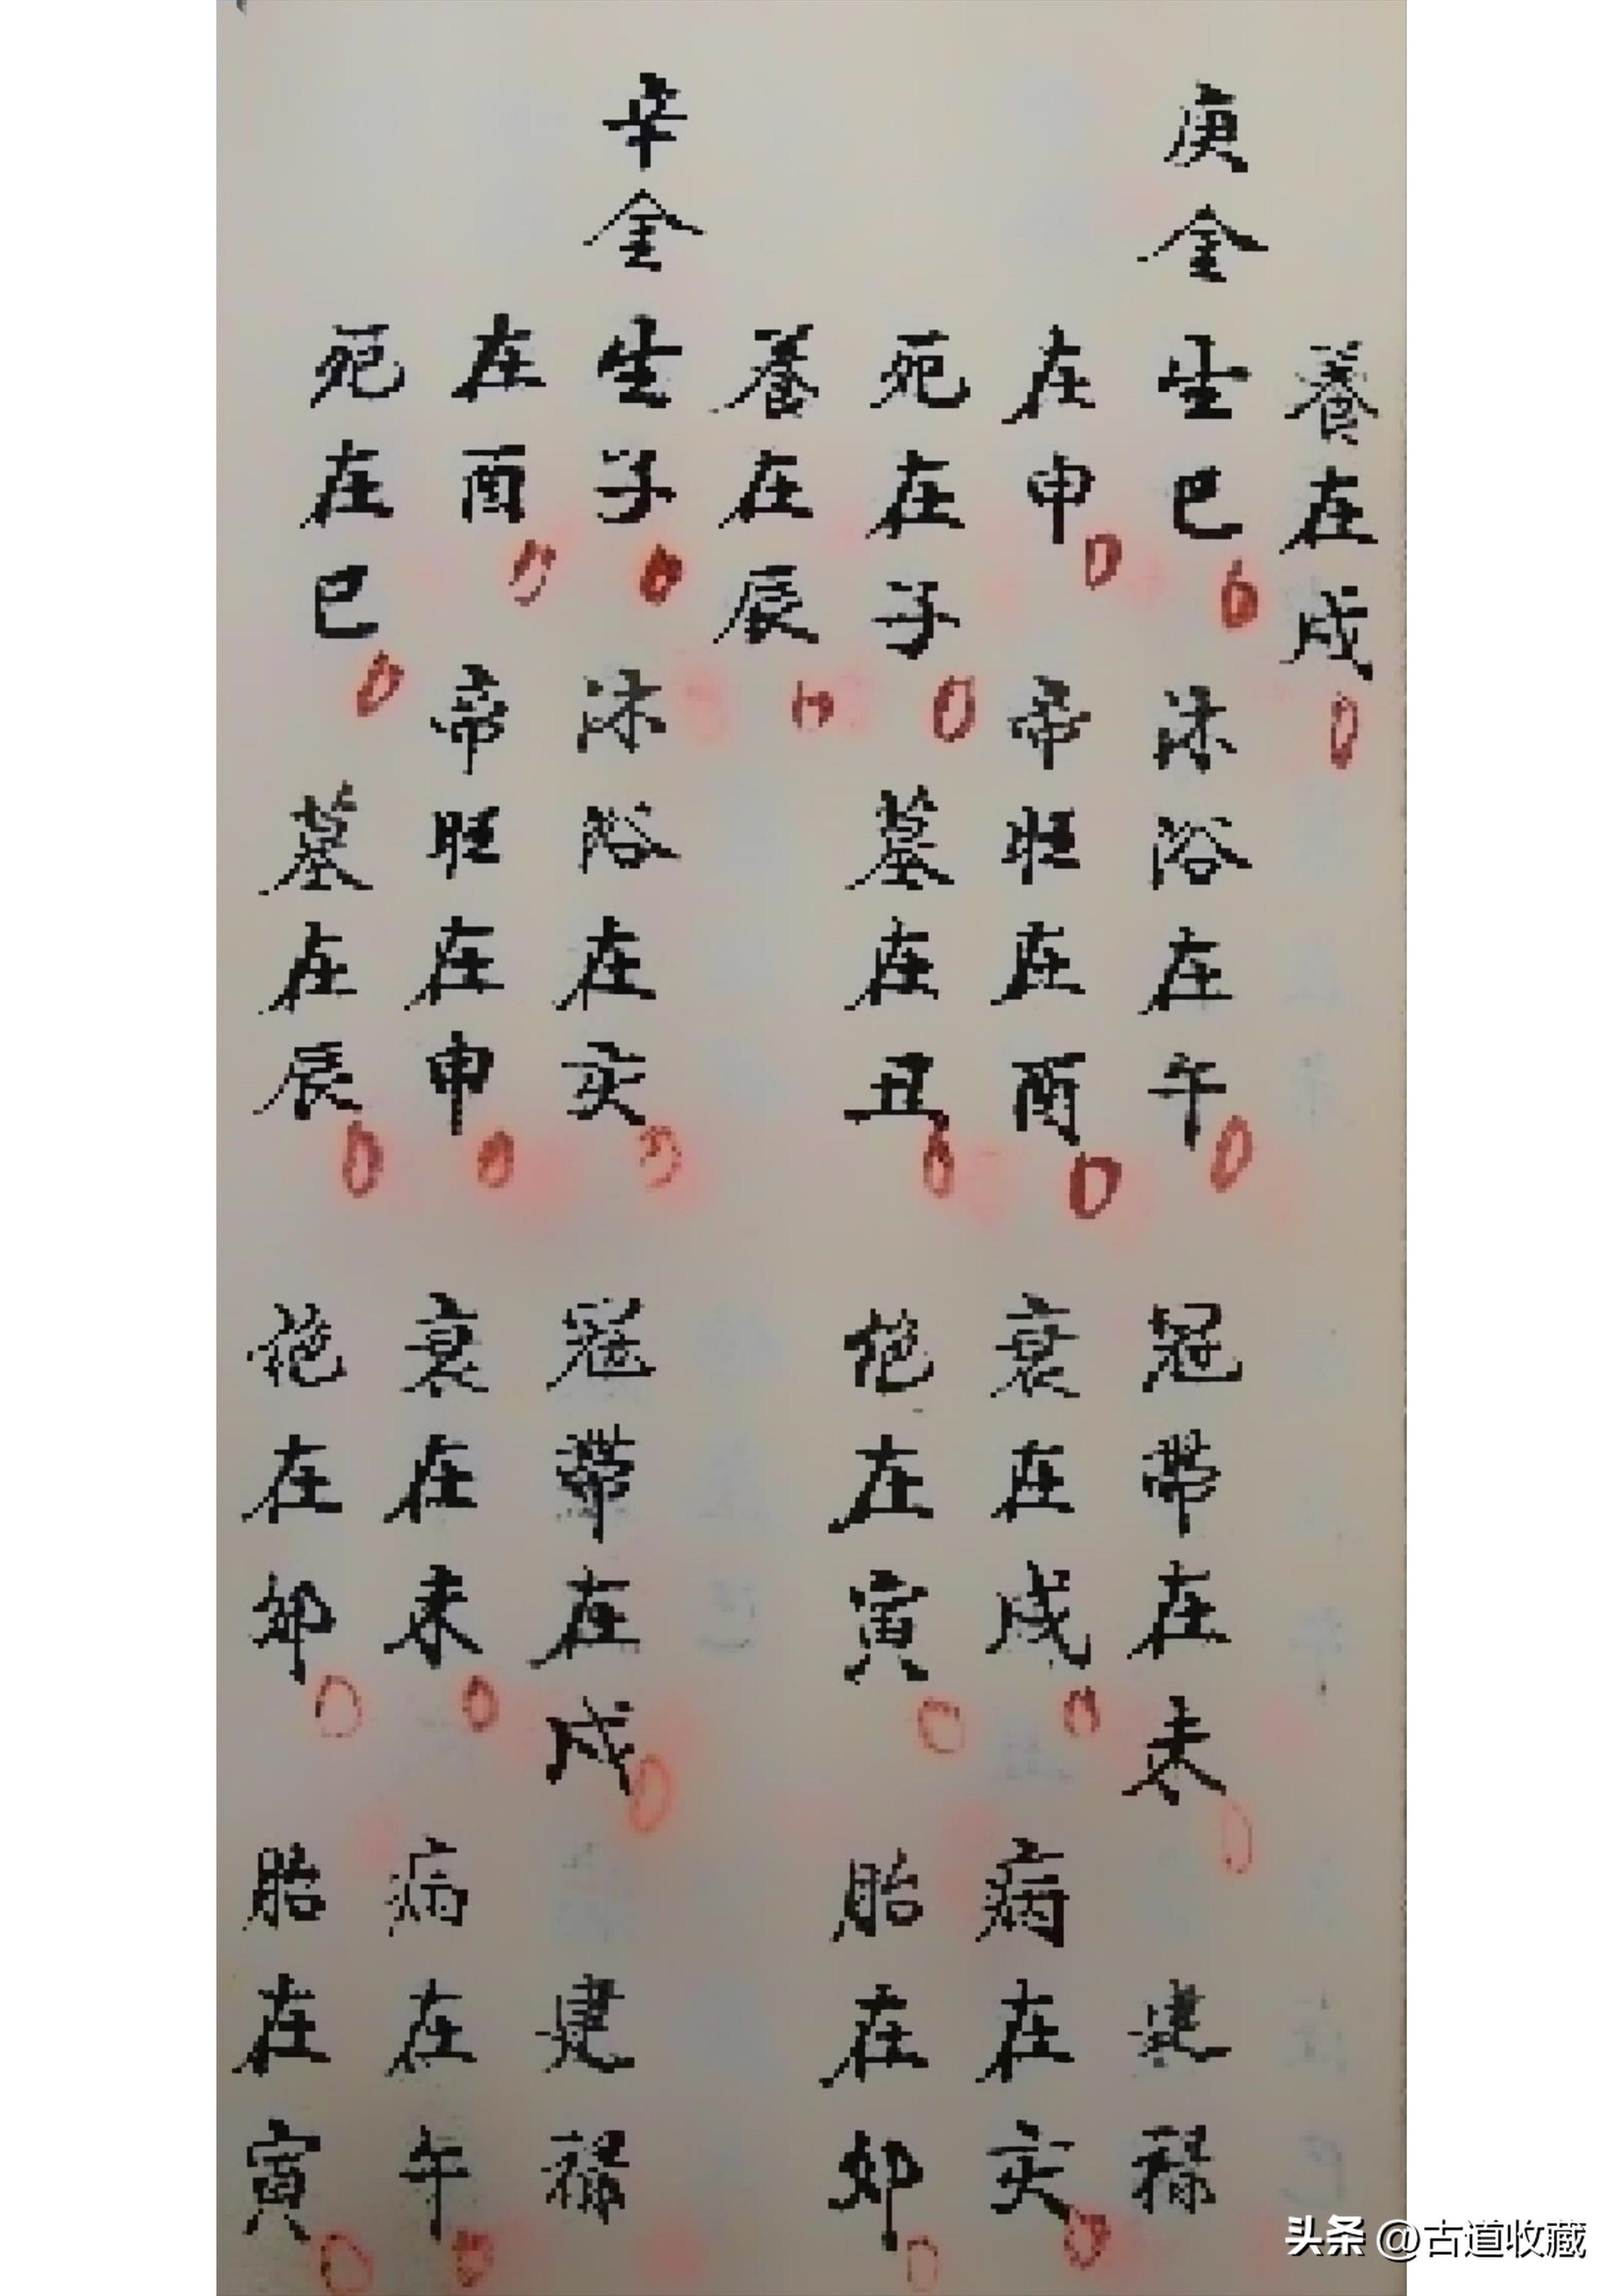 養在戌
庚金生巳 沐浴在午 冠帶在未 建祿
在申 帝旺在酉 衰在戌 病在亥
死在子 墓在丑 绝在寅 胎在卯
養在辰
辛金生子 沐浴在亥 冠帶在戌 建祿
在酉 帝旺在申 衰在未 病在午
死在巳 墓在辰 绝在卯 胎在寅
头条 @古道收藏